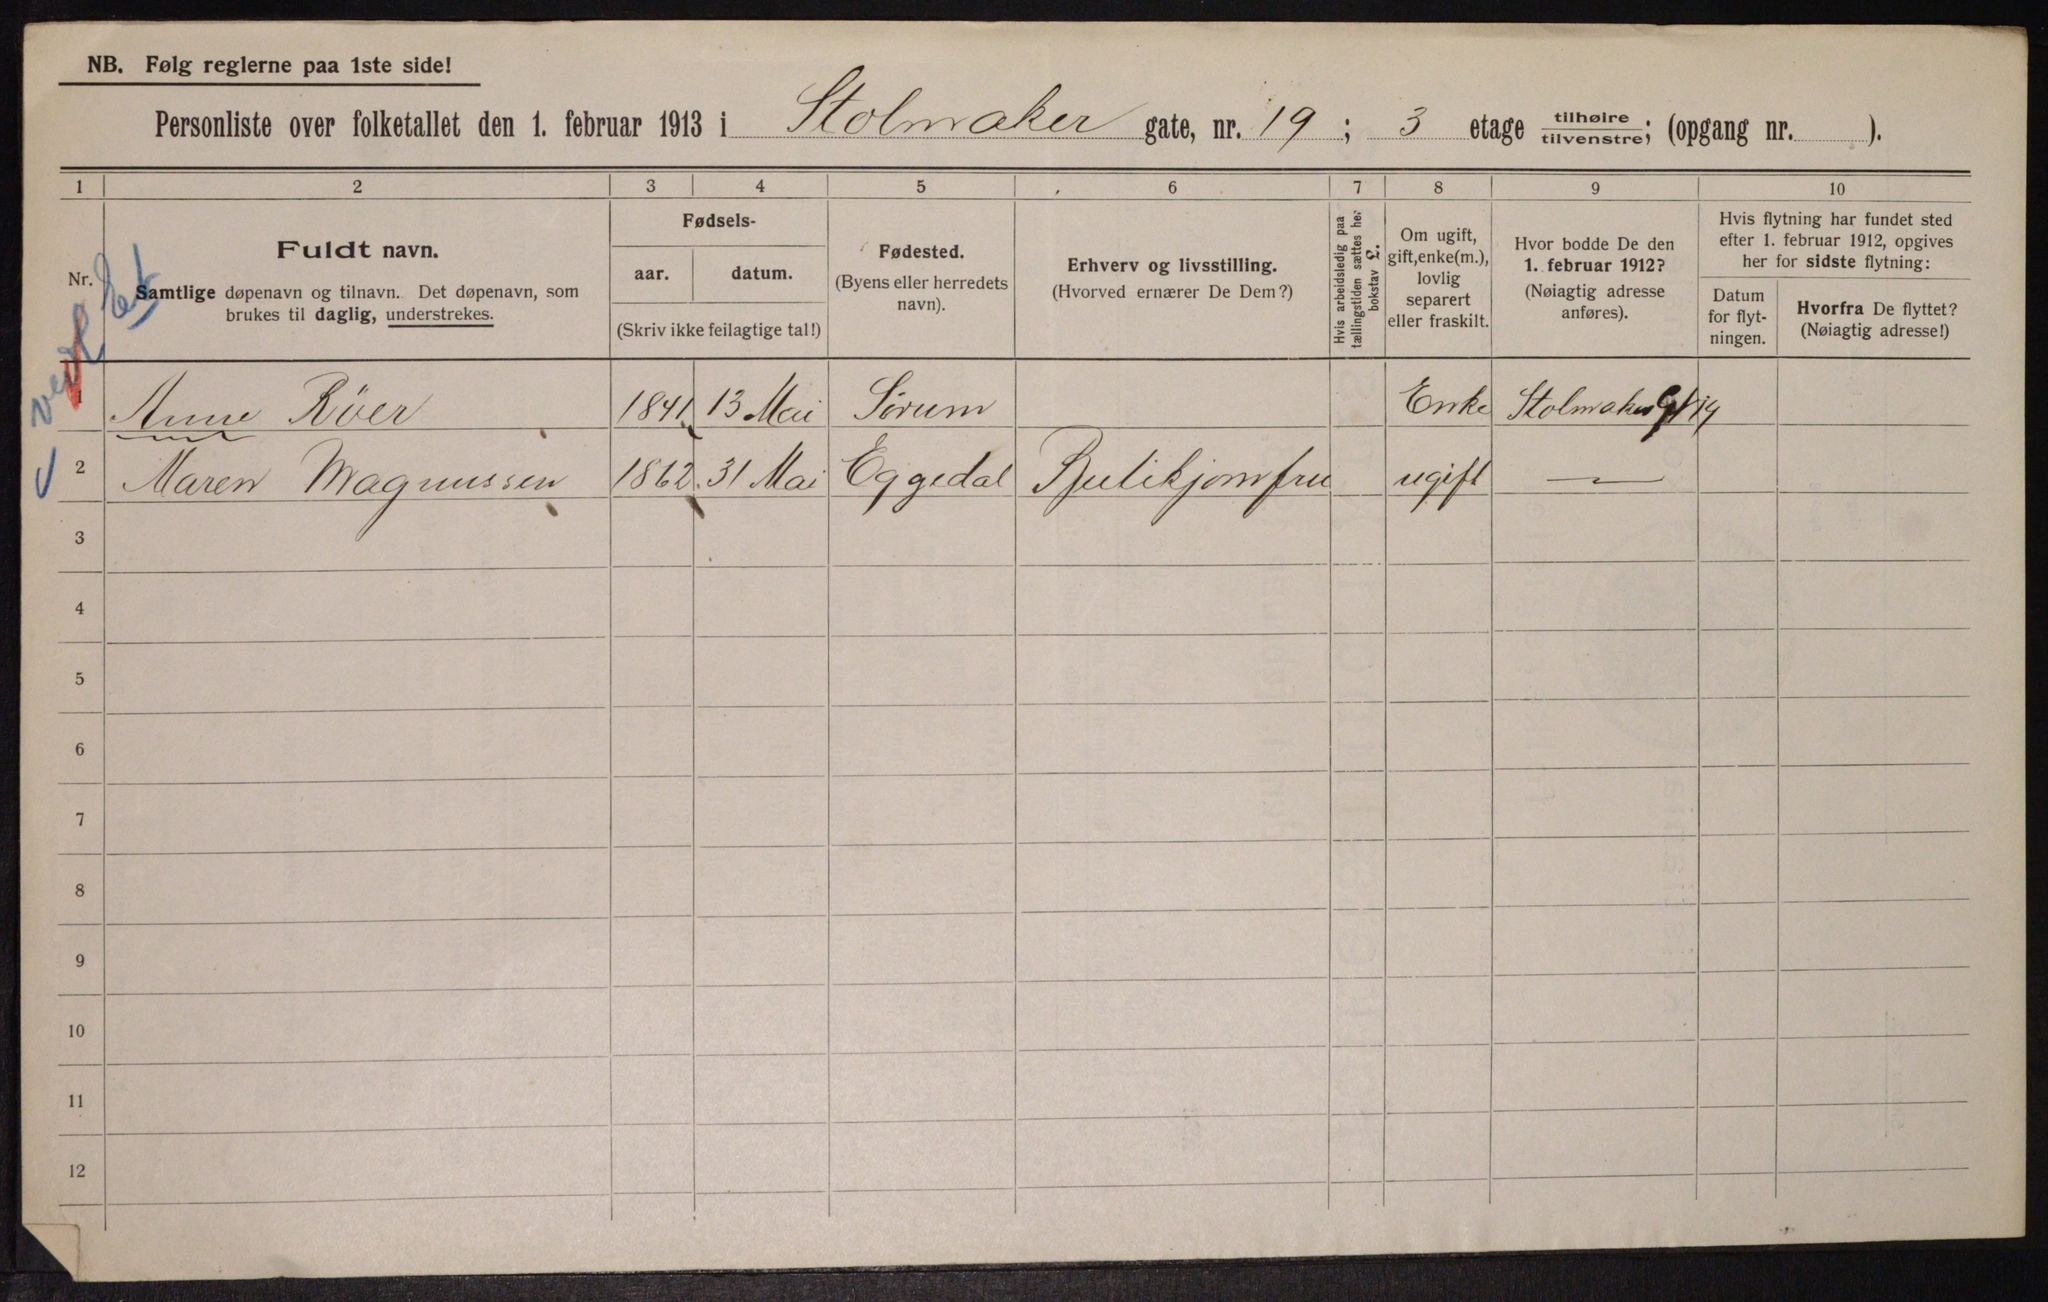 NB. Følg reglerne paa 1ste side!
Personliste over folketallet den 1. februar 1913 i Stolmaker gate, nr. 19; 3 etage tilhøire/tilvenstre; (opgang nr. ).
1 2 3 4 5 6 7 8 9 10
Nr.
Fuldt navn.
Samtlige døpenavn og tilnavn. Det døpenavn, som
brukes til daglig, understrekes.
Fødsels-
aar. datum.
(Skriv ikke feilagtige tal!)
Fødested.
(Byens eller herredets
navn).
Erhverv og livsstilling.
(Hvorved ernærer De Dem?)
Hvis arbeidsledig paa
tællingstiden sættes her
bokstav L.
Om ugift,
gift, enke(m.),
lovlig
separert
eller fraskilt.
Hvor bodde De den
1. februar 1912?
(Nøiagtig adresse
anføres).
Hvis flytning har fundet sted
efter 1. februar 1912, opgives
her for sidste flytning:
Datum
for flyt-
ningen.
Hvorfra De flyttet?
(Nøiagtig adresse!)
1 Anne Röer 1841 13 Mai Sørum Enke Stolmaker Gt 19
2 Maren Magnussen 1862 31 Mai Eggedal Butikjomfru ugift —
3
4
5
6
7
8
9
10
11
12